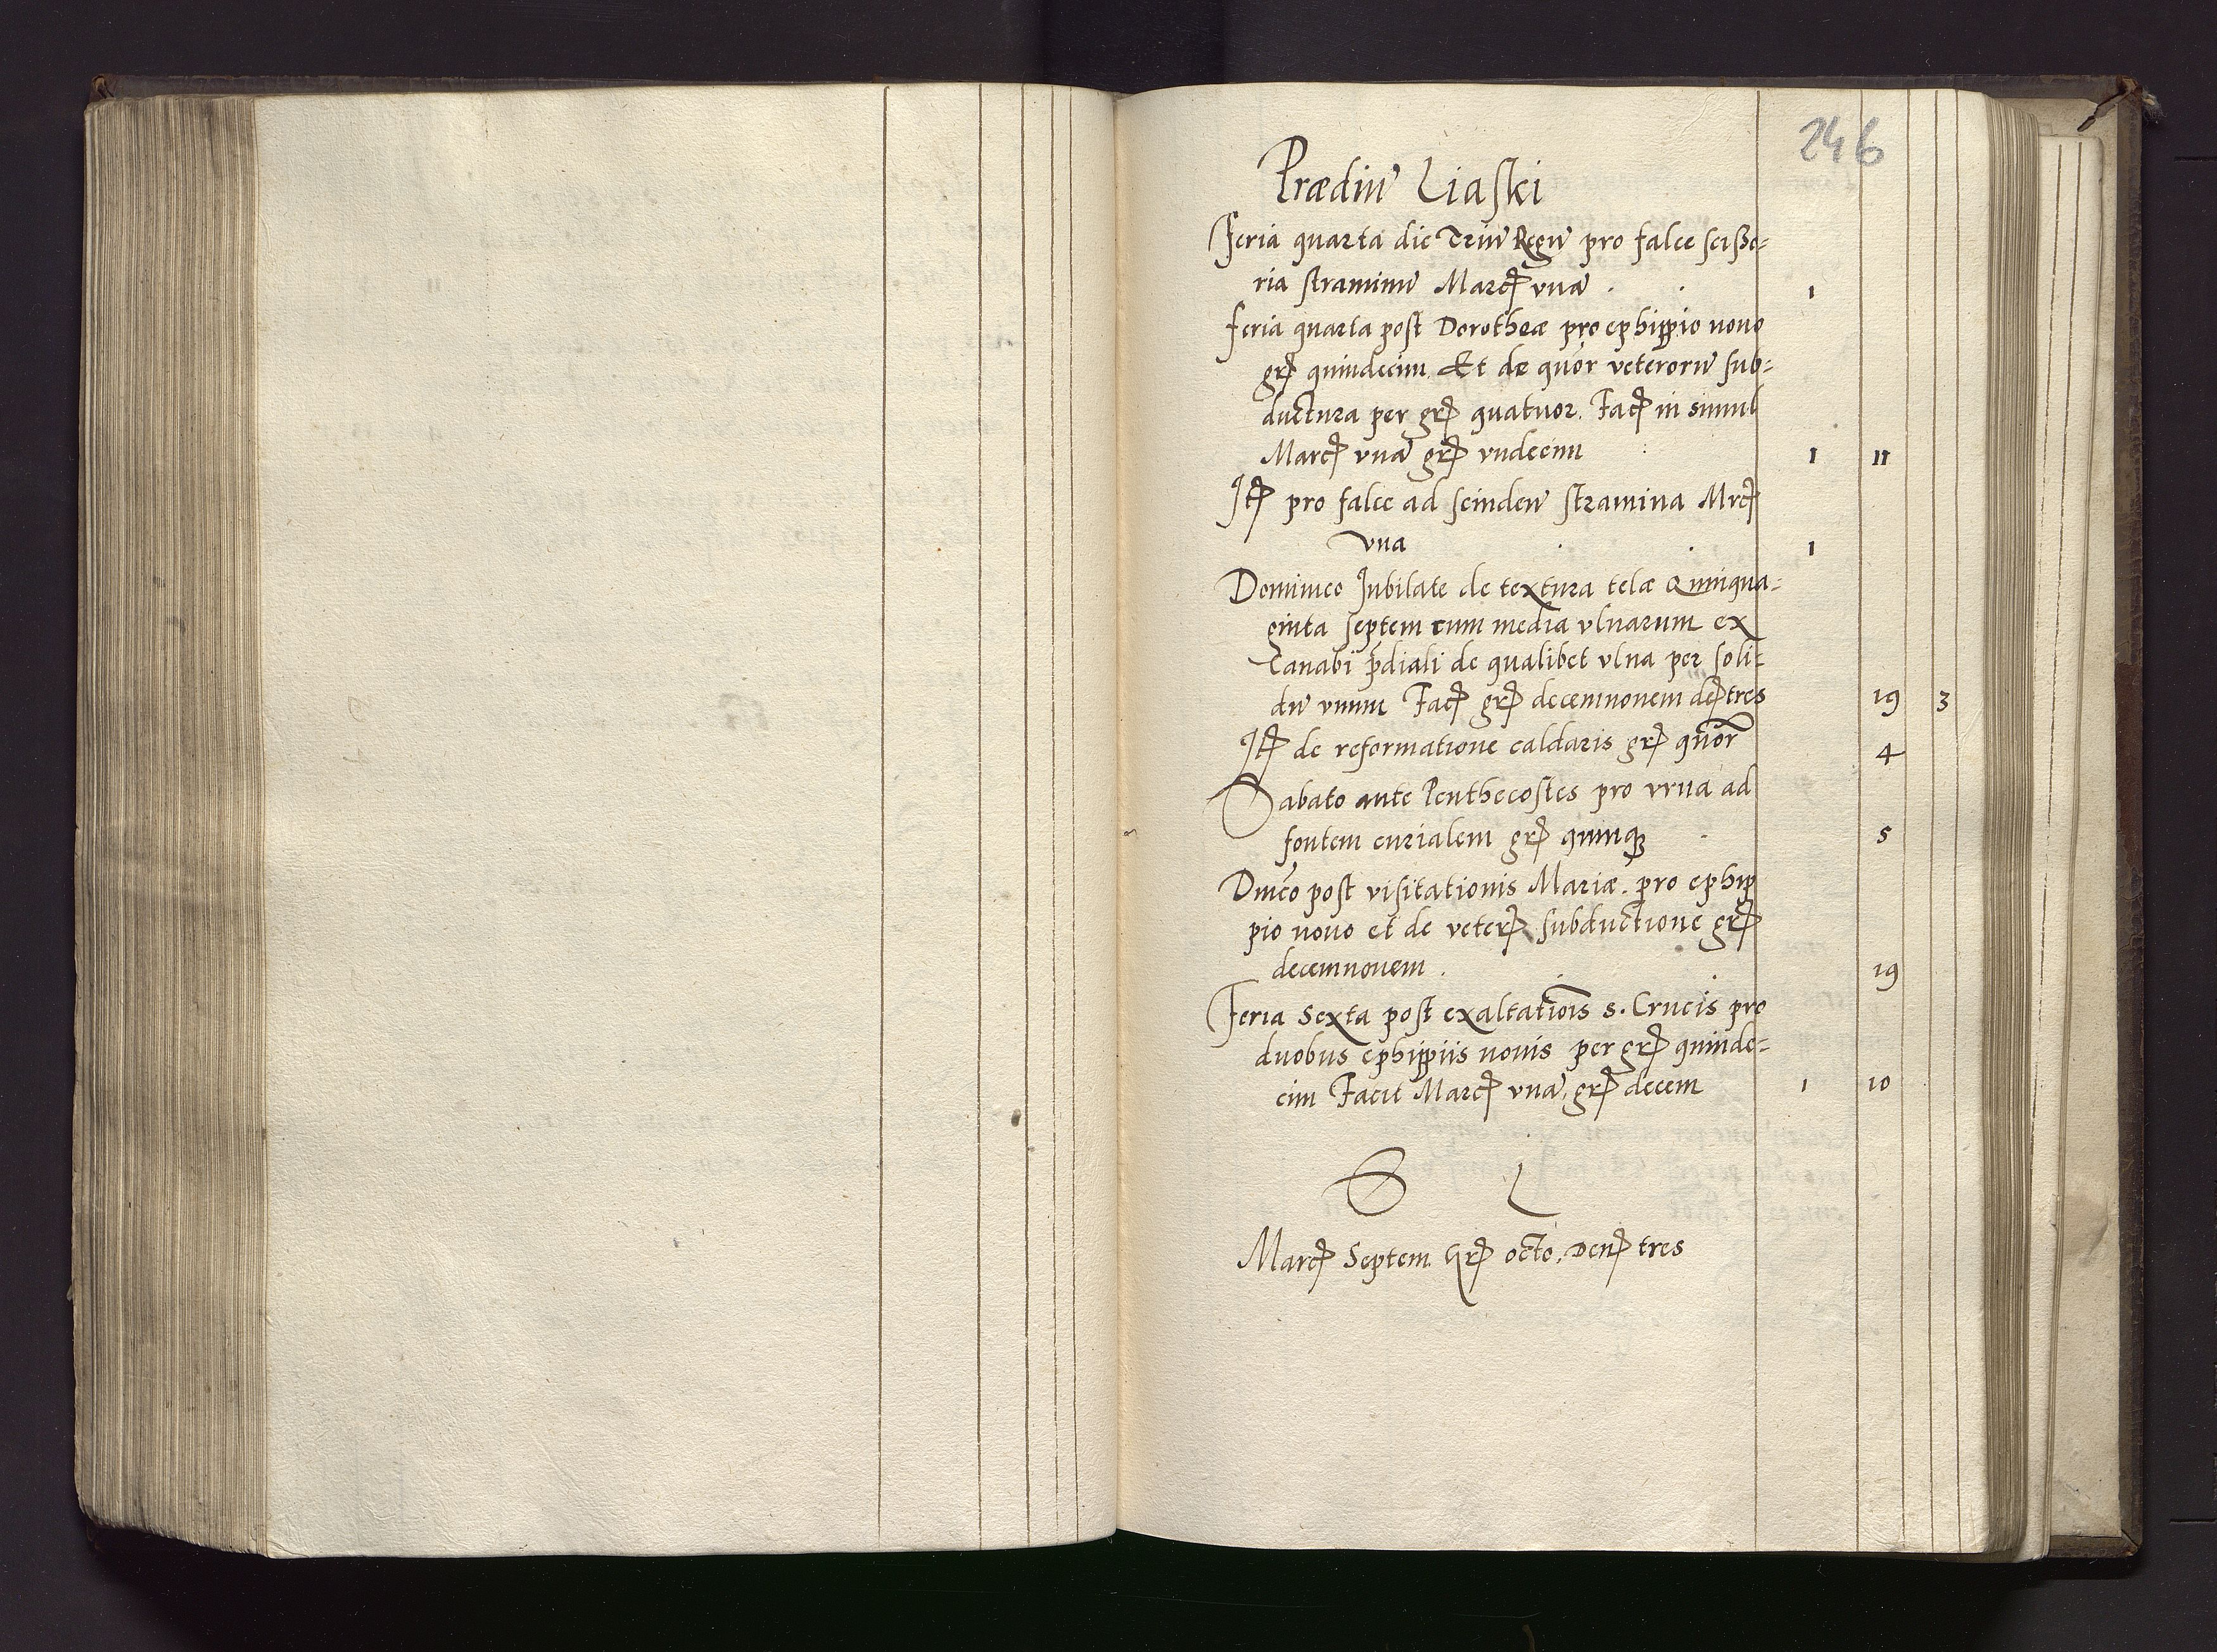 246
Prædiu̅ Liaski
Feria quarta die Triu̅ Regu̅ pro falce scisso=
ria straminu̅ Marcꝭ vna̅ 1
feria quarta post Dorotheæ pro ephippio nouo
grꝭ quindecim. Et de quor veteroru̅ sub=
ductura per grꝭ quatuor. Facꝭ in simul
Marcꝭ vna̅ grꝭ vndecim 1 11
Itꝭ pro falce ad scinden̅ stramina Mrcꝭ
vna 1
Dominico Jubilate de textura telæ Quinqua=
ginta septem cum media vlnarum ex
Canabi p̅diali de qualibet vlna per soli=
du̅ vnum Facꝭ grꝭ decemnouem deꝭ tres 19 3
Itꝭ de reformatione caldaris grꝭ quo̅r 4
Sabato ante Penthecostes pro vrna ad
fontem curialem grꝭ quinqꝫ 5
Dnico̅ post visitationis Mariæ. pro ephip
pio nouo et de veterꝭ subductione grꝭ
decemnouem. 19
Feria Sexta post exaltatio̅is s. Crucis pro
duobus ephippiis nouis per grꝭ quinde=
cim Facit Marcꝭ vna̅. grꝭ decem 1 10
S L
Marcꝭ Septem Grꝭ octo. Denꝭ tres